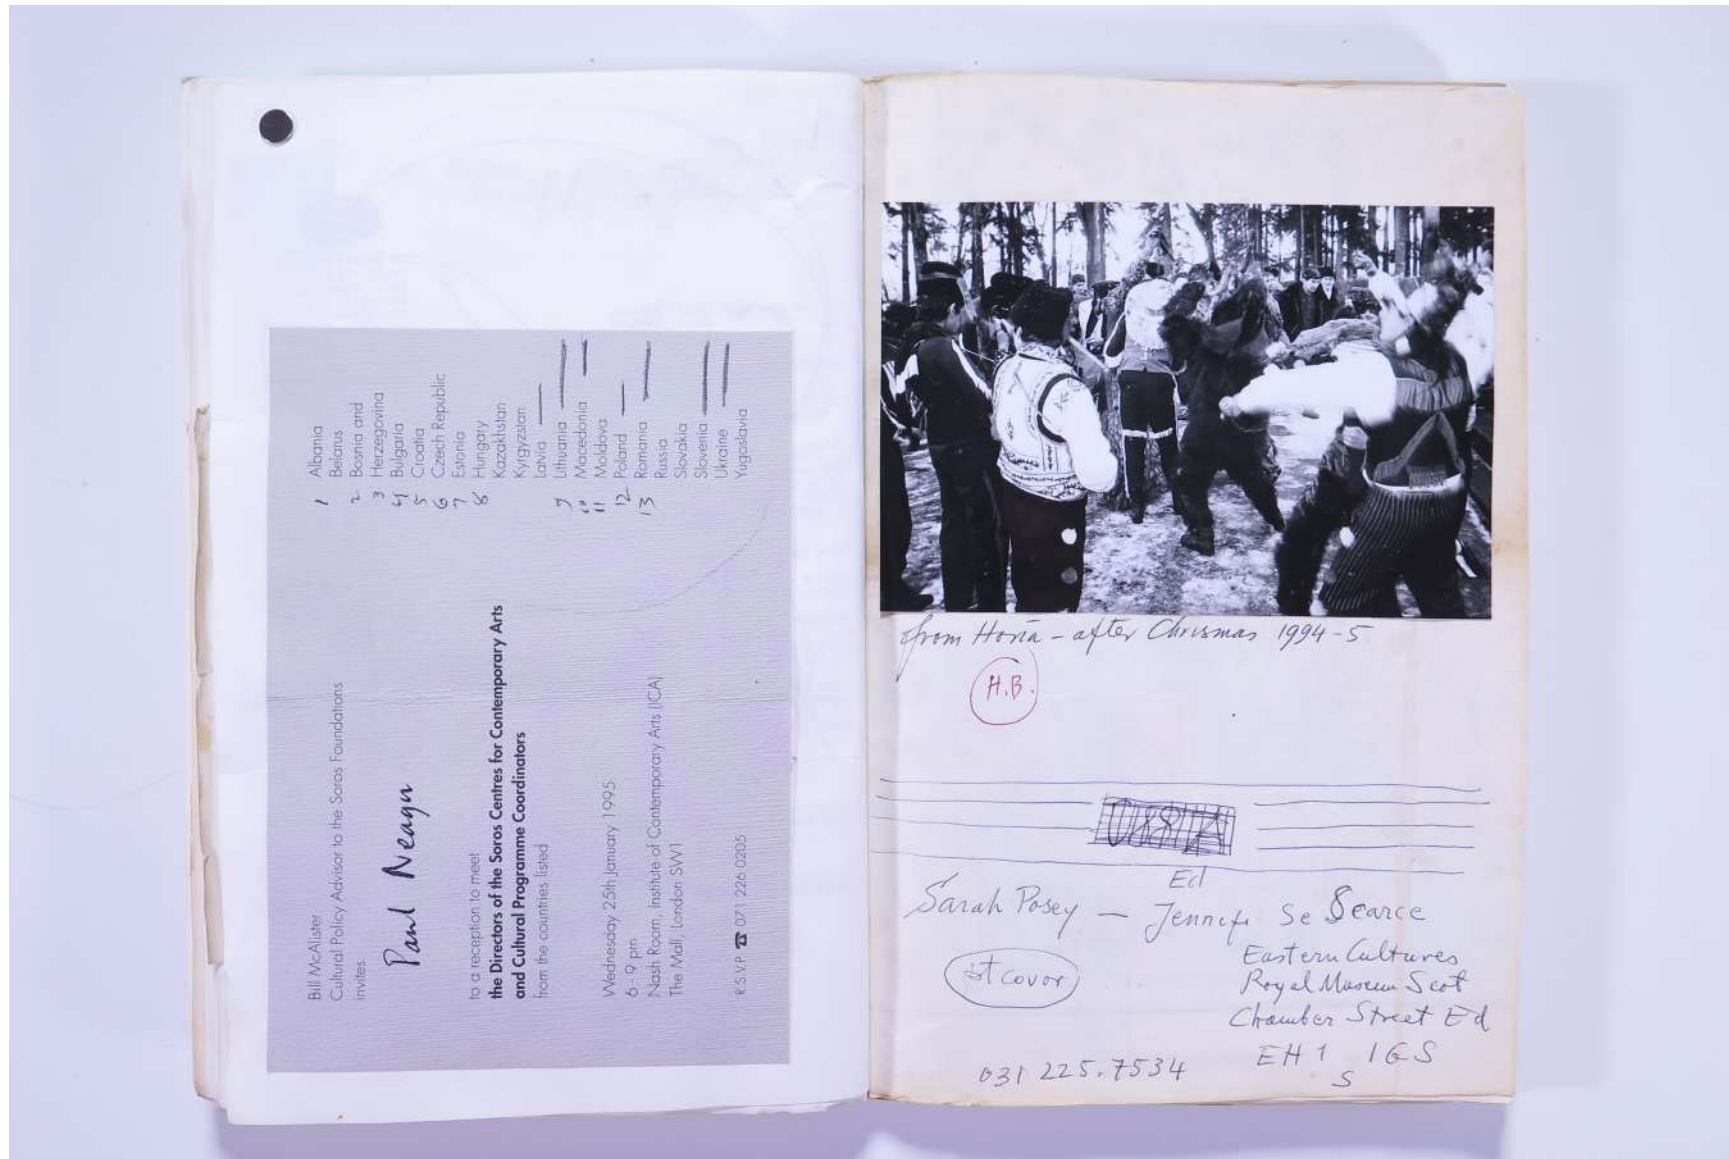 Bill McAlister
Cultural Policy Advisor to the Soros Foundations
invites
Paul Neagu
to a reception to meet
the Directors of the Soros Centres for Contemporary Arts
and Cultural Programme Coordinators
from the countries listed
Wednesday 25th January 1995
6 - 9 pm
Nash Room, Institute of Contemporary Arts (ICA)
The Mall, London SW1
R.S.V.P ☎ 071 226 0205
1 Albania
Belarus
2 Bosnia and
3 Herzegovina
4 Bulgaria
5 Croatia
6 Czech Republic
7 Estonia
8 Hungary
Kazakhstan
Kyrgyzstan
Latvia
9 Lithuania
10 Macedonia
11 Moldova
12 Poland
13 Romania
Russia
Slovakia
Slovenia
Ukraine
Yugoslavia
from Horia - after Chrismas 1994-5
H.B.
Ed
Sarah Posey — Jennife Se Scarce
Eastern Cultures
Royal Museum Scot
Chamber Street Ed
EH 1 1GS
S
1st cover
031 225.7534